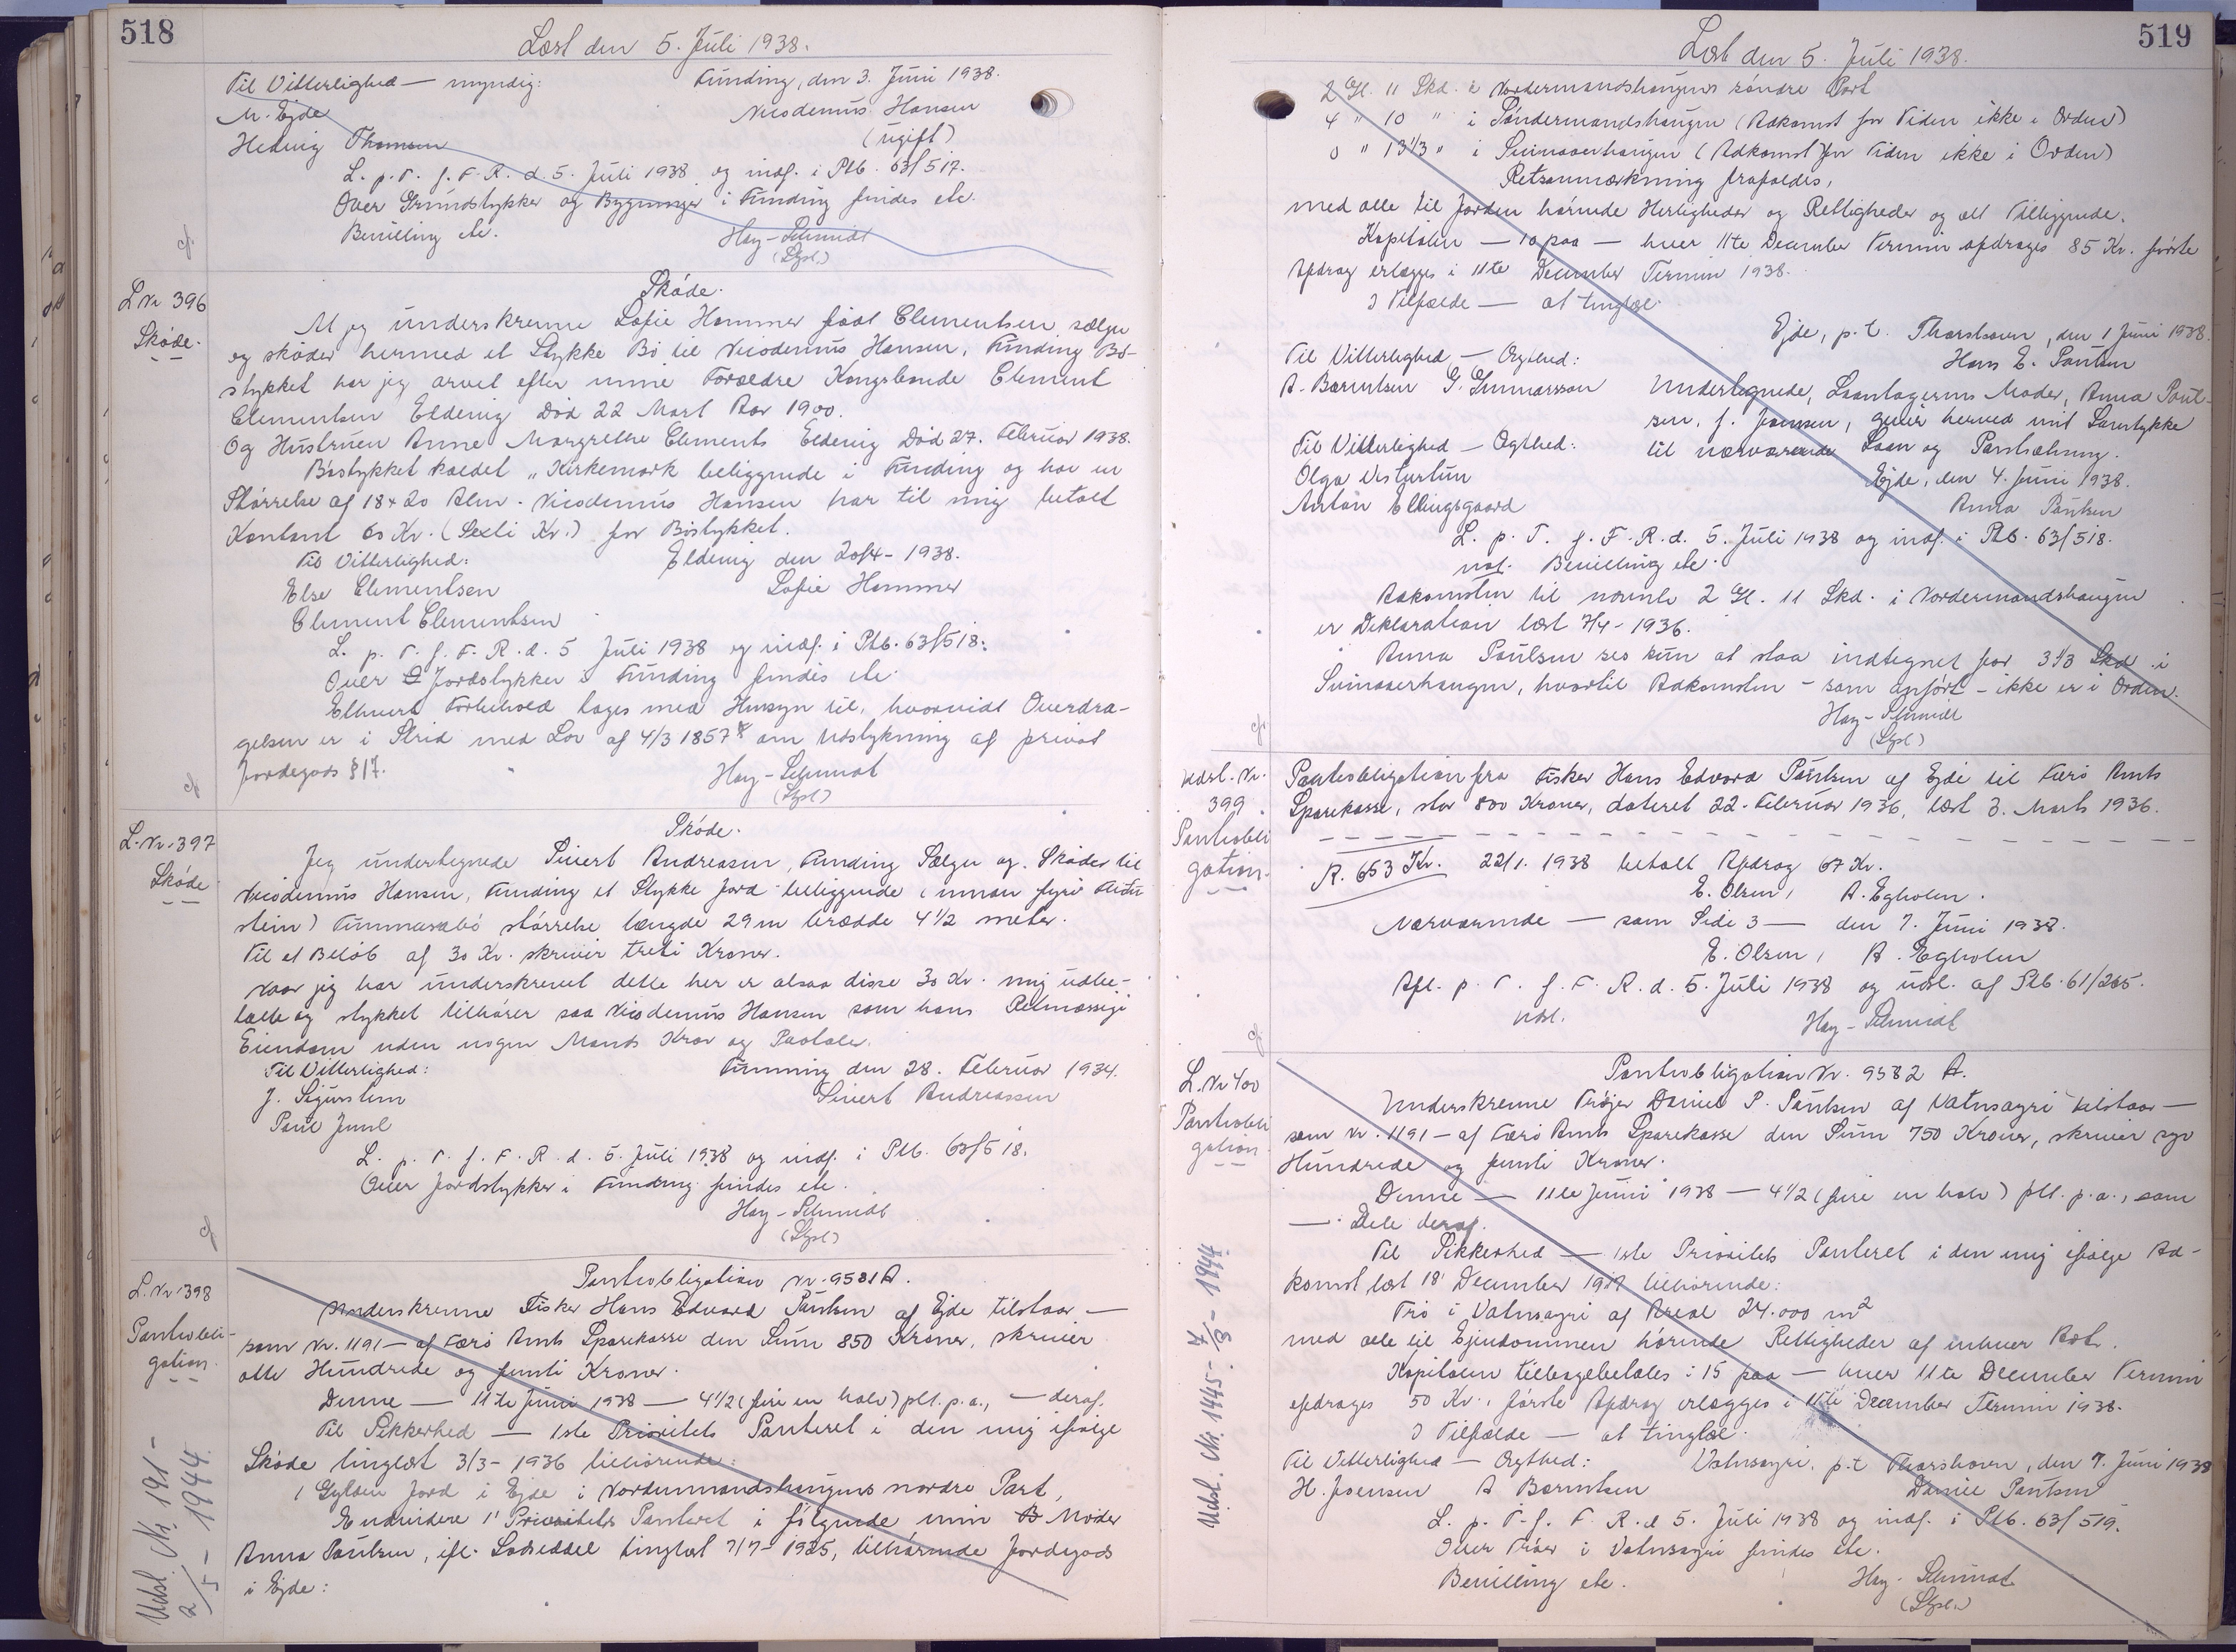 518
Læst den 5. Juli 1938.
Til Vitterlighed — myndig:
Funding, den 3. Juni 1938.
M. Ejde
Nicodemus Hansen
Hedvig Thomsen
(ugift)
L. p. T. f. F. R. d. 5. Juli 1938 og indf. i Ptb. 63/517.
Over Grundstykker og Bygninger i Funding findes etc.
Bevilling etc.
Hay-Schmidt
(Lgsl.)
L Nr 396
Skøde.
Skøde.
At jeg underskrevne Sofie Hammer født Clementsen sælger
og skøder hermed et Stykke Bø til Nicodemus Hansen, Funding Bø-
stykket har jeg arvet efter mine Forældre Kongsbonde Clement
Clementsen Eldevig Død 22 Mart Aar 1900.
Og Hustruen Anne Margrethe Clements Eldevig Død 27. Februar 1938.
Bøstykket kaldet „Kirkemørk beliggende i Funding og har en
Størrelse af 18 x 20 Alen. Nicodemus Hansen har til mig betalt
Kontant 60 Kr. (Seksti Kr.) for Bøstykket.
Til Vitterlighed:
Eldevig den 20/4 - 1938.
Else Clementsen
Sofie Hammer
Clement Clementsen
L. p. T. f. F. R. d. 5 Juli 1938 og indf. i Ptb. 63/518.
Over Jordstykker i Funding findes etc.
Ethvert Forbehold tages med Hensyn til, hvorvidt Overdra-
gelsen er i Strid med Lov af 4/3 1857 om Udstykning af privat
Jordegods § 17.
Hay-Schmidt
(Lgsl.)
L. Nr. 397
Skøde
Skøde.
Jeg undertegnede Sivert Andreasen, Funding Sælger og Skøder til
Nicodemus Hansen, Funding et Stykke Jord beliggende (innan fyri
stein) størrelse længde 29 m brædde 4 1/2 meter.
Til et Beløb af 30 Kr. skriver treti Kroner.
Naar jeg har underskrevet dette her er altsaa disse 30 Kr. mig udbe-
talte og stykket tilhører saa Nicodemus Hansen som hans Retmæssige
Eiendom uden nogen Mands Krav og Paatale.
Til Vitterlighed:
Funning den 28. Februar 1934.
J. Sigurstein
Sivert Andreassen
Paul Juul
L. p. T. f. F. R. d. 5. Juli 1938 og indf. i Ptb. 63/518.
Over Jordstykker i Funding findes etc.
Hay-Schmidt
(Lgsl)
L. Nr. 398
Pantobli-
gation.
Udsl. Nr. 191 -
2/5 - 1944
Pantobligation Nr. 9581 A.
Underskrevne Fisker Hans Edvard Paulsen af Ejde tilstaar —
som Nr. 1191 — af Færø Amts Sparekasse den Sum 850 Kroner, skriver
otte Hundrede og femti Kroner.
Denne — 11te Juni 1938 — 4 1/2 (fire en halv) pCt. p. a., — deraf.
Til Sikkerhed — 1ste Prioritets Panteret i den mig ifølge
Skøde tinglæst 3/3 - 1936 tilhørende:
1 Gylden Jord i Ejde i Nordermandshaugens nordre Part,
Endvidere 1' Prioritets Panteret i følgende min Moder
Anna Paulsen, ifl. Lodseddel tinglæst 7/7 - 1925, tilhørende Jordegods
i Ejde:
519
Læst den 5. Juli 1938.
2 Gl. 11 Skd. i Nordermandshaugens søndre Part
4 " 10 " i Søndermandshaugen (Adkomst for Tiden ikke i Orden)
0 " 13 1/3 " i Svinaaerhaugen (Adkomst for Tiden ikke i Orden)
Retsanmærkning frafaldes,
med alle til Jorden hørende Herligheder og Rettigheder og alt Tilliggende.
Kapitalen — 10 paa — hver 11te December Termin afdrages 85 Kr. første
Afdrag erlægges i 11te December Termin 1938.
I Tilfælde — at tinglæse.
Ejde, p. t. Thorshavn, den 1 Juni 1938.
Til Vitterlighed — Ægthed:
Hans E. Paulsen
A. Barentsen G. Gunnarsson
Undertegnede, Laantagerens Moder, Anna Paul-
sen, f. Joensen, giver herved mit Samtykke
Til Vitterlighed — Ægthed:
til nærværende Laan og Pantsætning.
Olga Vestertún
Ejde, den 4. Juni 1938.
Anton Ellingsgaard
Anna Paulsen
L. p. T. f. F. R. d. 5. Juli 1938 og indf. i Ptb. 63/518.
Bevilling etc.
Adkomsten til nævnte 2 Gl. 11 Skd. i Nordermandshaugen
er Deklaration læst 7/4 - 1936.
Anna Paulsen ses kun at staa indtegnet for 3 1/3 Skd. i
Svinaaerhaugen, hvortil Adkomsten - som anført - ikke er i Orden.
Hay-Schmidt
(Lgsl)
Udsl. Nr.
399
Pantobli
gation.
Pantobligation fra Fisker Hans Edvard Paulsen af Ejde til Færø Amts
Sparekasse, stor 800 Kroner, dateret 22. Februar 1936, læst 3. Marts 1936.
R. 653 Kr. 22/1. 1938 betalt Afdrag 67 Kr.
E. Olsen, A. Egholm.
Nærværende — som Side 3 — den 7. Juni 1938.
E. Olsen, A. Egholm
Afl. p. T. f. F. R. d. 5. Juli 1938 og udsl. af Ptb. 61/265.
Udsl.
Hay-Schmidt
L. Nr 400
Pantobli
gation
Udsl. Nr. 1445 - 7/8 - 1944
Pantobligation Nr. 9582 A.
Underskrevne Trøjer Daniel P. Paulsen af Vatnsoyri tilstaar —
som Nr. 1191 — af Færø Amts Sparekasse den Sum 750 Kroner, skriver syv
Hundrede og femti Kroner.
Denne — 11te Juni 1938 — 4 1/2 (fire en halv) pCt. p. a., som
— Dele deraf.
Til Sikkerhed — 1ste Prioritets Panteret i den mig ifølge Ad-
komst læst 18' December 1917 tilhørende:
Trø i Vatnsoyri af Areal 24.000 m²
med alle til Ejendommen hørende Rettigheder af enhver Art.
Kapitalen tilbagebetales i 15 paa — hver 11te December Termin
afdrages 50 Kr., første Afdrag erlægges i 11te December Termin 1938.
I Tilfælde — at tinglæse.
Til Vitterlighed — Ægthed:
Vatnsoyri, p. t. Thorshavn, den 7. Juni 1938
H. Joensen A Barentsen
Daniel Paulsen
L. p. T. f. F. R. d 5. Juli 1938 og indf. i Ptb. 63/519.
Over Trøer i Vatnsoyri findes etc.
Bevilling etc.
Hay-Schmidt
(Lgsl.)